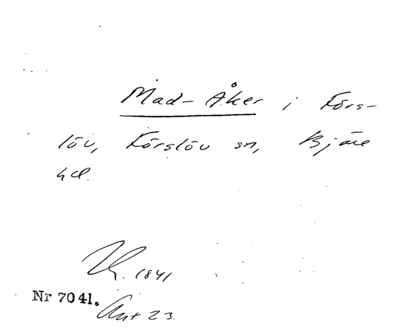 Mad-Åker i Förs-
löv, Förslöv sn, Bjäre
hd.
1841
Nr 7041.
Akt 23.